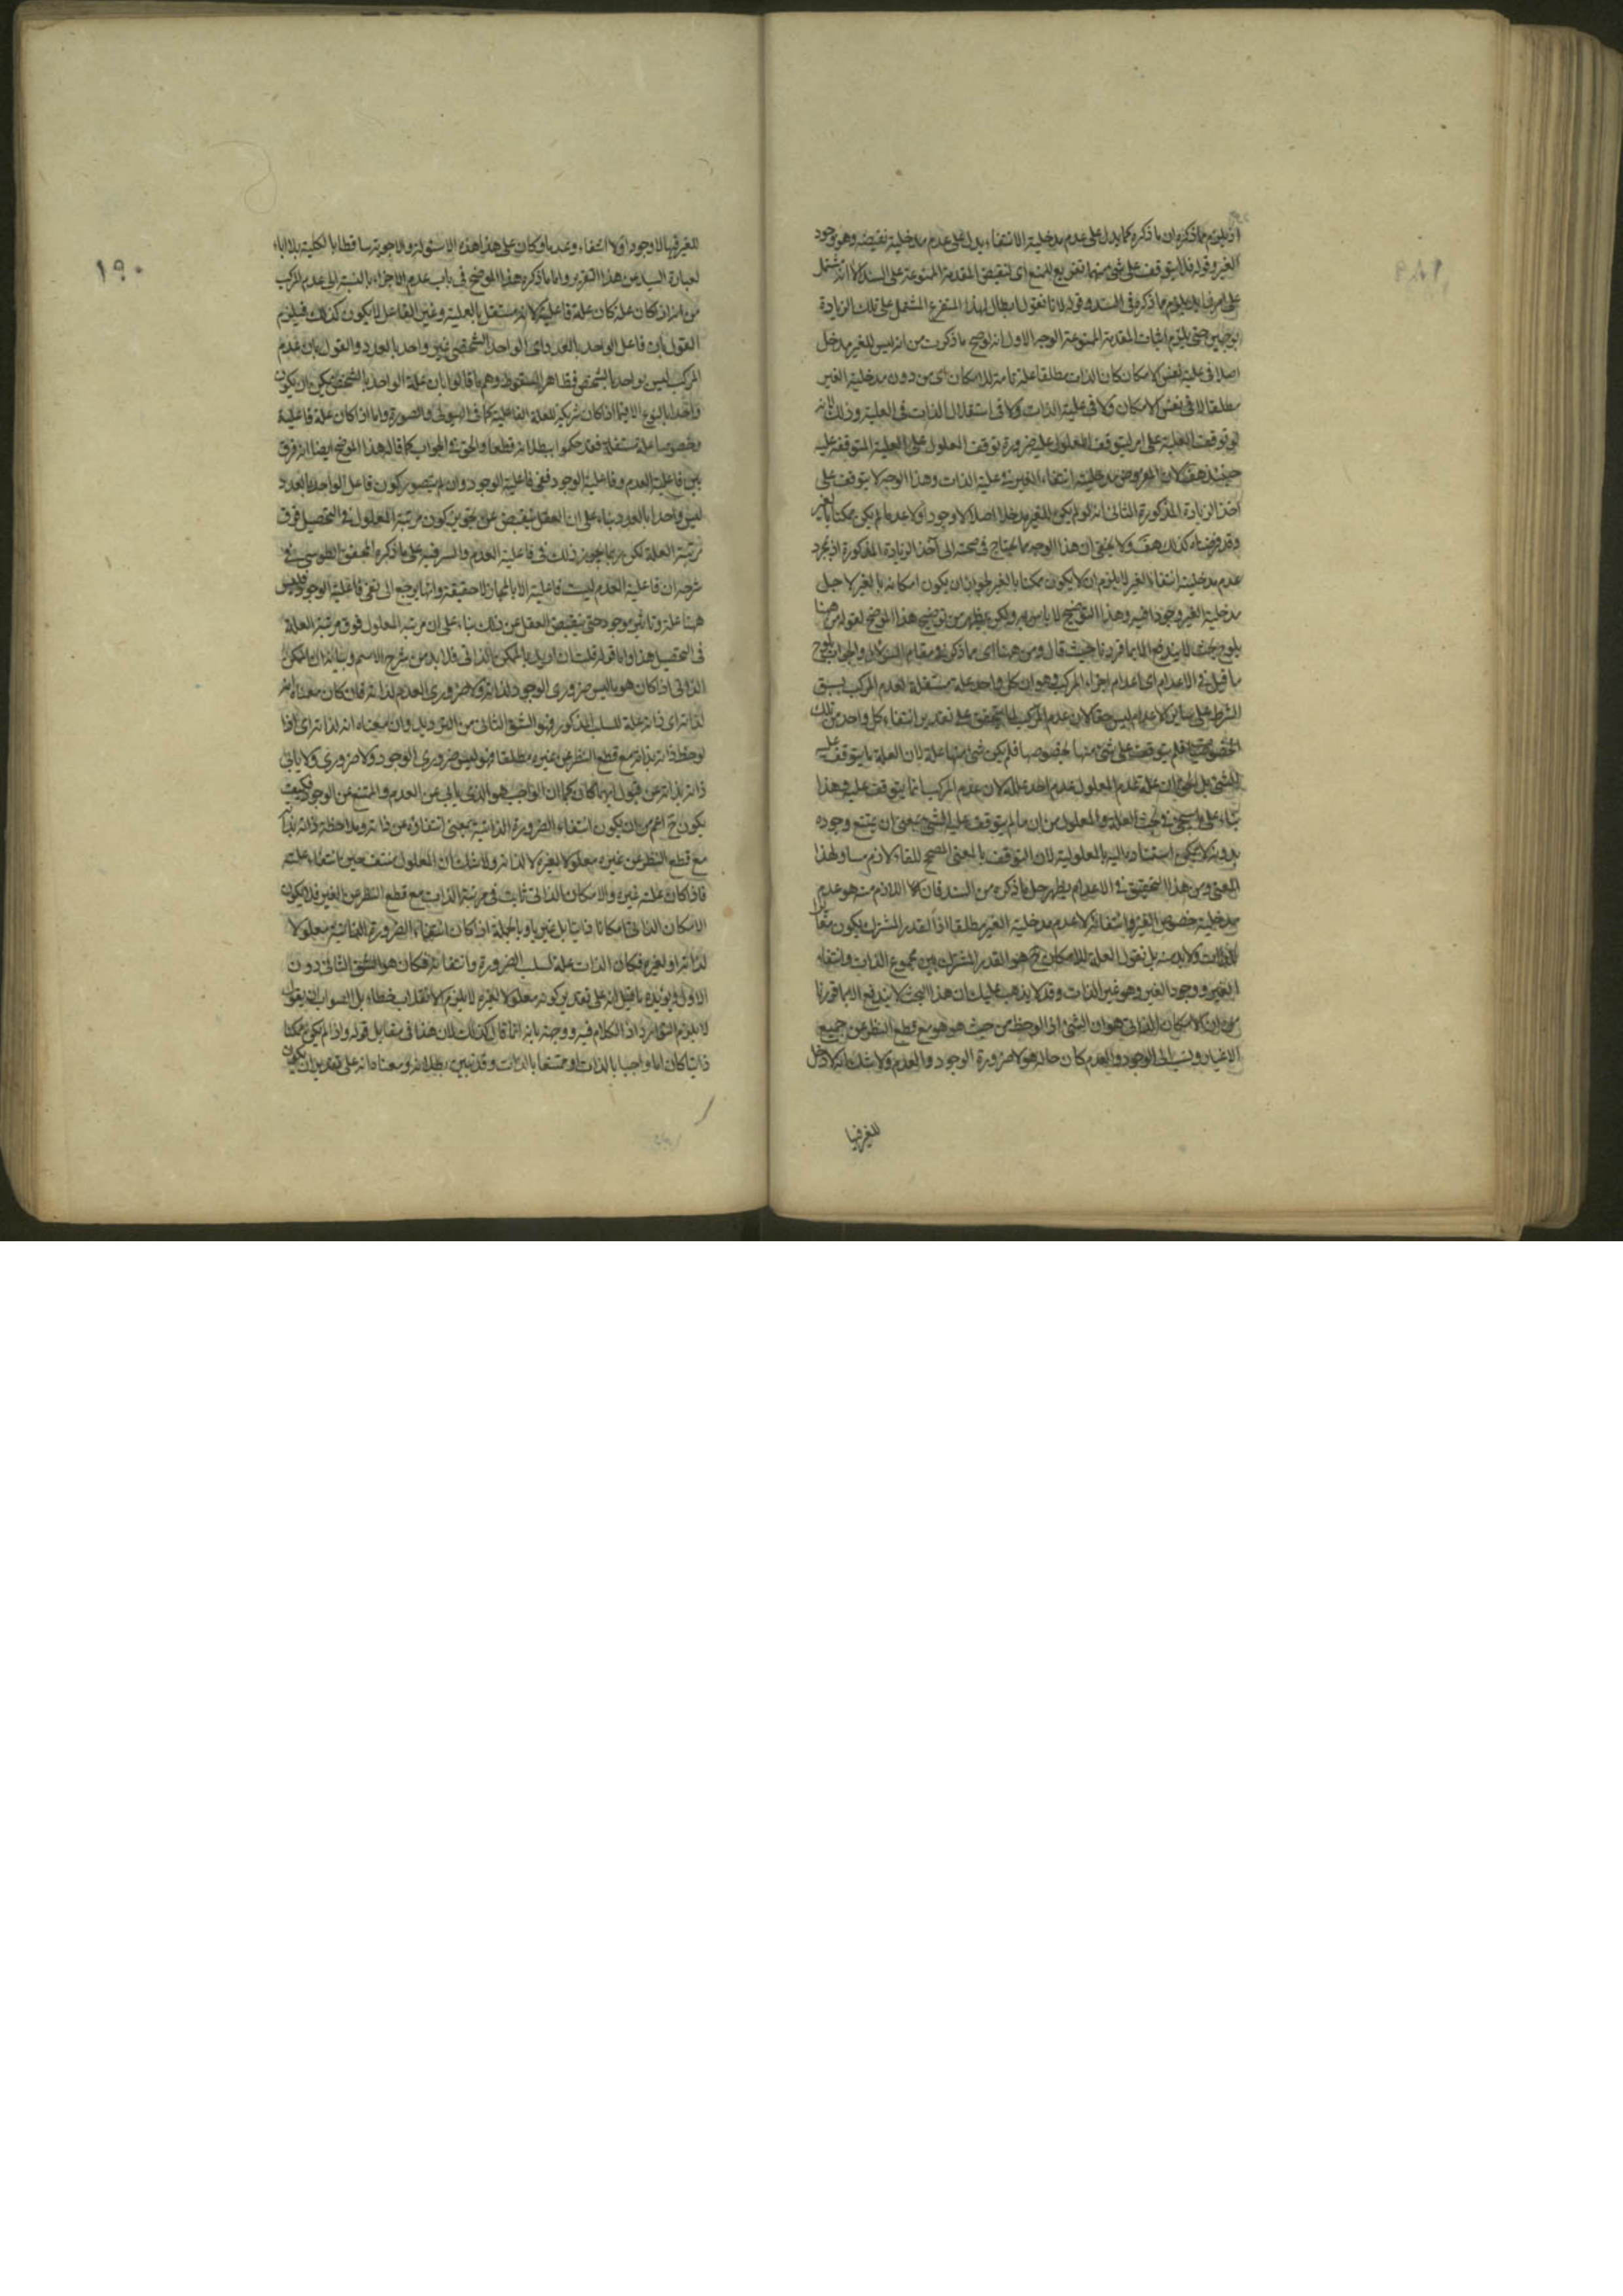 اذ يلزم مما ذكره ان ما ذكره كما يدل على عدم مدخلية الانتفاء يدل على عدم مدخلية نقيضه وهو وجود
الغير وقوله فلا يتوقف على شئ منهما تفريع للمنع اى لنقيض المقدمة الممنوعة على السند الا انه يشتمل
على امر زايد يلزم مما ذكره فى السند وقوله لانا نقول ابطال لهذا المتفرع المشتمل على تلك الزيادة
بوجهين حتى يلزم اثبات المقدمة الممنوعة الوجه الاول انه لو صح ما ذكرت من انه ليس للغير مدخل
اصلا فى علية نفس الامكان كان الذات مطلقا علة تامة للامكان اى من دون مدخلية الغير
مطلقا لا فى نفس الامكان ولا فى علية الذات ولا فى استقلال الذات فى العلية وذلك لانه
لو توقفت العلية على امر لتوقف المعلول عليه ضرورة توقف المعلول على العلية المتوقفة عليه
حينئذ هف لان المفروض مدخلية انتفاء الغير فى علية الذات وهذا الوجه لا يتوقف على
اخذ الزيادة المذكورة الثانى انه لو لم يكن للغير مدخل اصلا لا وجودا ولا عدما لم يكن ممكنا بالغير
وقد فرضناه كذلك هف ولا يخفى ان هذا الوجه مما يحتاج فى صحته الى اخذ الزيادة المذكورة اذ بمجرد
عدم مدخلية انتفاء الغير لا يلزم ان لا يكون ممكنا بالغير لجواز ان يكون امكانه بالغير لاجل
مدخلية الغير وجودا فيه وهذا التوضيح لا باس به ولكن يظهر من توضيح هذا الموضح لقوله من هنا
يلوح بحث لا يندفع الا بما قررنا حيث قال ومن هنا اى مما ذكر فى مقام السؤال والجواب يلوح
ما قيل فى الاعدام اى اعدام اجزاء المركب وهو ان كل واحد علة مستقلة لعدم المركب بسبق
الشرط على ساير الاعدام ليس حقا لان عدم المركب لما تحقق على تقدير انتفاء كل واحد من تلك
الخصوصيات فلم يتوقف على شئ منها بخصوصها فلم يكن شئ منها علة لان العلة ما يتوقف عليه
الشئ بل الحق ان علة عدم المعلول عدم احد علله لان عدم المركب انما يتوقف عليه وهذا
بناء على ما سيجئ فى بحث العلة والمعلول من ان ما لم يتوقف عليه الشئ بمعنى ان يمتنع وجوده
بدونه لا يكون استناده اليه بالمعلولية لان التوقف بالمعنى المصحح للفاء لازم مساو لهذا
المعنى ومن هذا التحقيق فى الاعدام يظهر حل ما ذكره من السند فان اللازم منه هو عدم
مدخلية خصوص الغير وانتفائه لا عدم مدخلية الغير مطلقا اذ القدر المشترك يكون مغايرا
للذات ولا بد منه بل نقول العلة للامكان ح هو القدر المشترك بين مجموع الذات وانتفاء
الغير ووجود الغير وهو غير الذات وقد لا يذهب عليك ان هذا البحث لا يندفع الا بما قررنا
من ان الامكان الذاتى هو ان الشئ اذا لوحظ من حيث هو هو مع قطع النظر عن جميع
الاغيار ونسب الى الوجود والعدم كان حاله هو لا ضرورة الوجود والعدم ولا شك انه لا دخل
للغير فيها
١٨٩
للغير فيها لا وجودا ولا انتفاء وعدما وكان على هذا هذه الاسئولة والاجوبة ساقطا بالكلية بلا اباء
لعبارة السيد من هذا التقرير واما ما ذكره هذا الموضح فى باب عدم الاجزاء بالنسبة الى عدم المركب
من انه اذا كان علة كان علة فاعلية لانه مستقل بالعلية وغير الفاعل لا يكون كذلك فيلزم
القول بان فاعل الواحد بالعدد اى الواحد الشخصى غير واحد بالعدد والقول بان عدم
المركب ليس بواحد بالشخص فظاهر السقوط وهم ما قالوا بان علة الواحد بالشخص يمكن ان يكون
واحدا بالنوع الا فيما اذا كان شريكة للعلة الفاعلية كما فى الهيولى والصورة واما اذا كان علة فاعلية
وخصوصا علة مستقلة فقد حكموا ببطلانه قطعا والحق فى الجواب كما قاله هذا الموضح ايضا انه فرق
بين فاعلية العدم وفاعلية الوجود ففى فاعلية الوجود وان لم يتصور كون فاعل الواحد بالعدد
ليس واحدا بالعدد بناء على ان العقل ينقبض عن تجويز كون مرتبة المعلول فى التحصيل فوق
مرتبة العلة لكن ربما يجوز ذلك فى فاعلية العدم والسر فيه على ما ذكره المحقق الطوسى فى
شرحه ان فاعلية العدم ليست فاعلية الا بالمجاز لا حقيقة وانما يرجع الى نفى فاعلية الوجود فليس
هنا علة وتاثير موجود حتى ينقبض العقل عن ذلك بناء على ان مرتبة المعلول فوق مرتبة العلة
فى التحصيل هذا واما قوله قلت ان اريد بالممكن بالذاتى فلا بد من شرح الاسم وبيانه ان الممكن
الذاتى اذا كان هو ما ليس ضرورى الوجود لذاته ولا ضرورى العدم لذاته فان كان معناه انه
لذاته اى ذاته علة للسلب المذكور فهو الشق الثانى من الترديد وان معناه انه لذاته اى اذا
لوحظ ذاته بذاته مع قطع النظر عن غيره مطلقا فهو ليس ضرورى الوجود ولا ضرورى ولا يابى
ذاته بذاته عن قبول ايهما كان كما ان الواجب هو الذى يابى عن العدم والممتنع عن الوجود فكيف
يكون ح اعم من ان يكون انتفاء الضرورة الذاتية بمعنى انتفاؤه عن ذاته وملاحظة ذاته بذاته
مع قطع النظر عن غيره معلولا لغيره لا لذاته ولا شك ان المعلول منتف حين انتفاء علته
فاذا كان علته غيره والامكان الذاتى ثابت فى مرتبة الذات مع قطع النظر عن الغير فلا يكون
الامكان الذاتى امكانا ذاتيا بل غيريا وبالجملة اذا كان انتفاء الضرورة الذاتية معلولا
لذاته او لغيره فكان الذات علة لسلب الضرورة وانتفائه فكان هو الشق الثانى دون
الاول ويؤيده ما قيل انه على تقدير كونه معلولا لغيره لا يلزم الانقلاب خطاء بل الصواب ان يقول
لا يلزم التوارد اذ الكلام فيه ووجهه بانه انما قال كذلك لان هذا فى مقابل قوله واذا لم يكن ممكنا
ذاتيا كان اما واجبا بالذات او ممتنعا بالذات وقد تبين بطلانه ومعناه انه على تقدير ان يكون
١٩٠